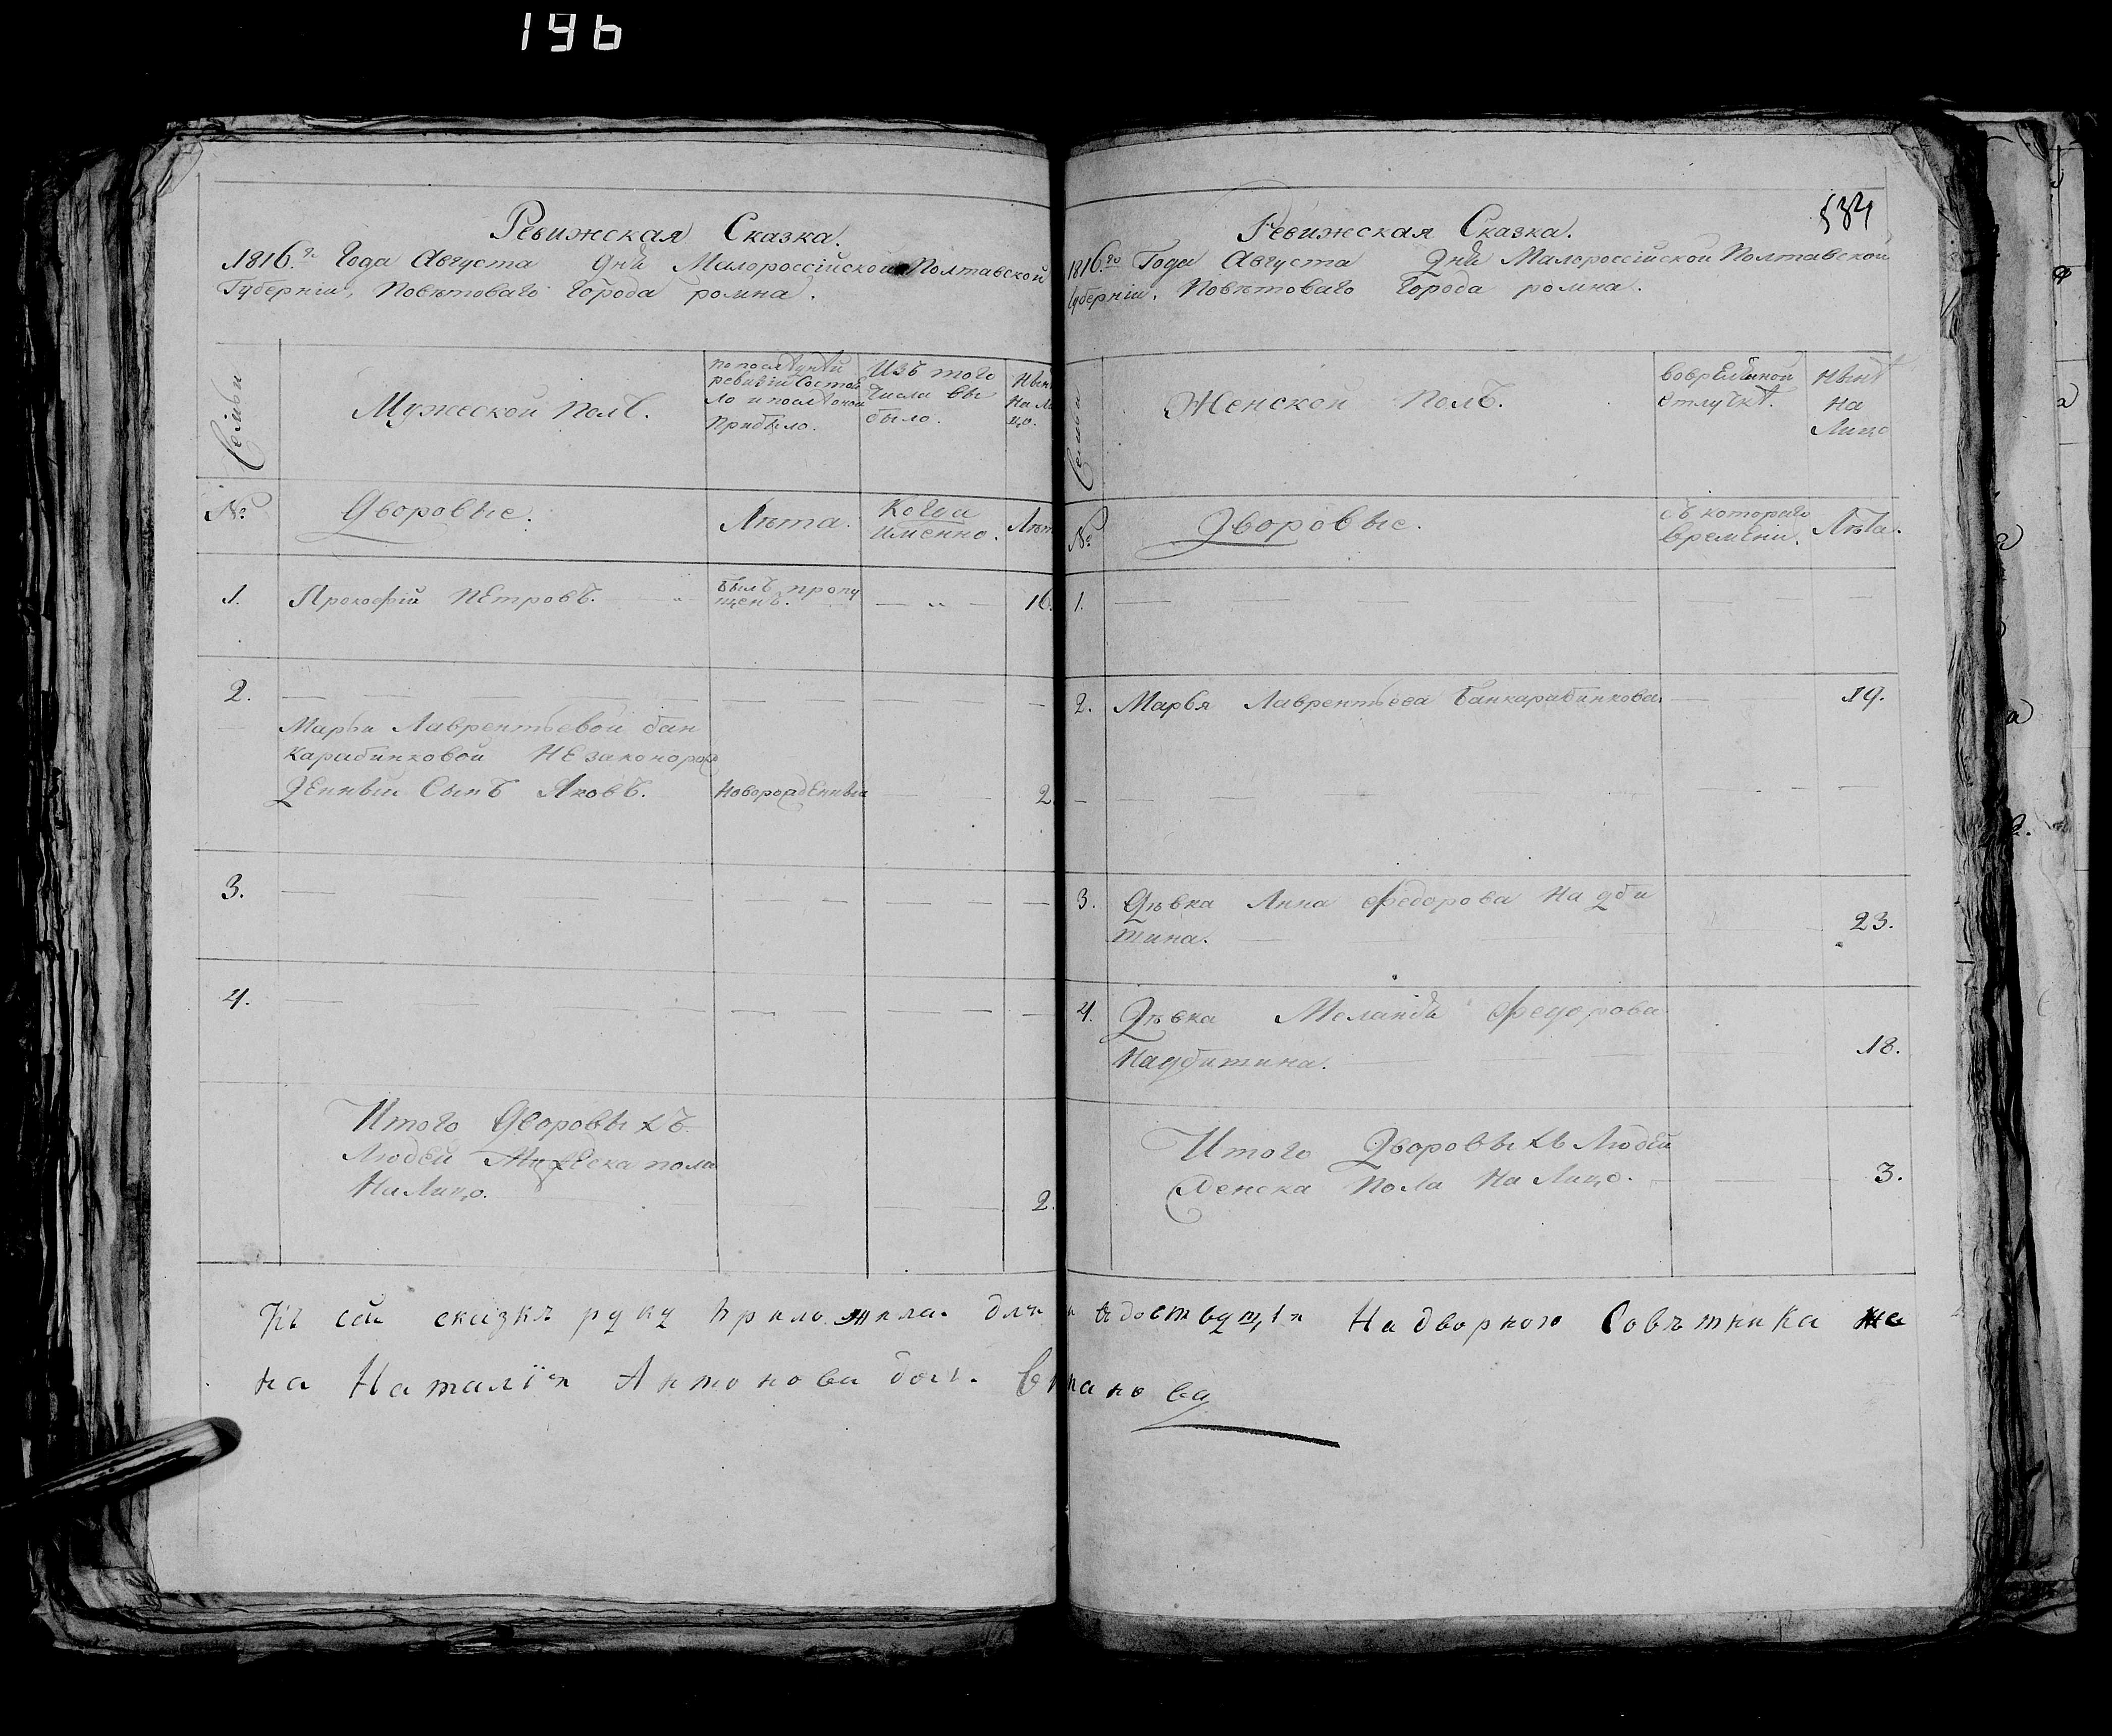 196
Ревижская Сказка.
1816.го Года Августа Дня Малороссійской Полтавской
Губерніи, Повѣтоваго Города ромна.
Семьи
Мужеской Полъ.
по послѣдней
ревизіи Состоя
ло и после оной
Прибыло.
Изъ того
Числа Вы
было.
Нын
На Ли
цо.
№
Дворовые.
Лѣта.
Когда
Именно.
Лѣт
1. Прокофій Петровъ. Былъ пропу
щенъ. 16.
2.
Марьи Лаврентьевой бан
карабинковой незаконорож
Денный Сынъ Яковъ. Новорожденный 2
3.
4.
Итого Дворовыхъ
Людей Мужеска пола
На Лицо. 2.
534
Ревижская Сказка.
1816.го Года Августа Дня Малороссійской Полтавской
Губерніи, Повѣтоваго Города ромна.
Семьи
Женской Полъ.
Вовременной
отлучке.
Нынѣ
На
Лицо
№
Дворовые.
Съ котораго
времени.
Лѣта.
1.
2. Марья Лаврентьева Банкарабинкова 19.
3. Дѣвка Анна Федорова Надби
тина. 23.
4. Дѣвка Федорова
Надбитина. 18.
Итого Дворовыхъ Людей
Женска Пола На Лицо. 3.
Къ сей сказкѣ руку приложила Надворного Совѣтника же
на Наталія Антонова дочь